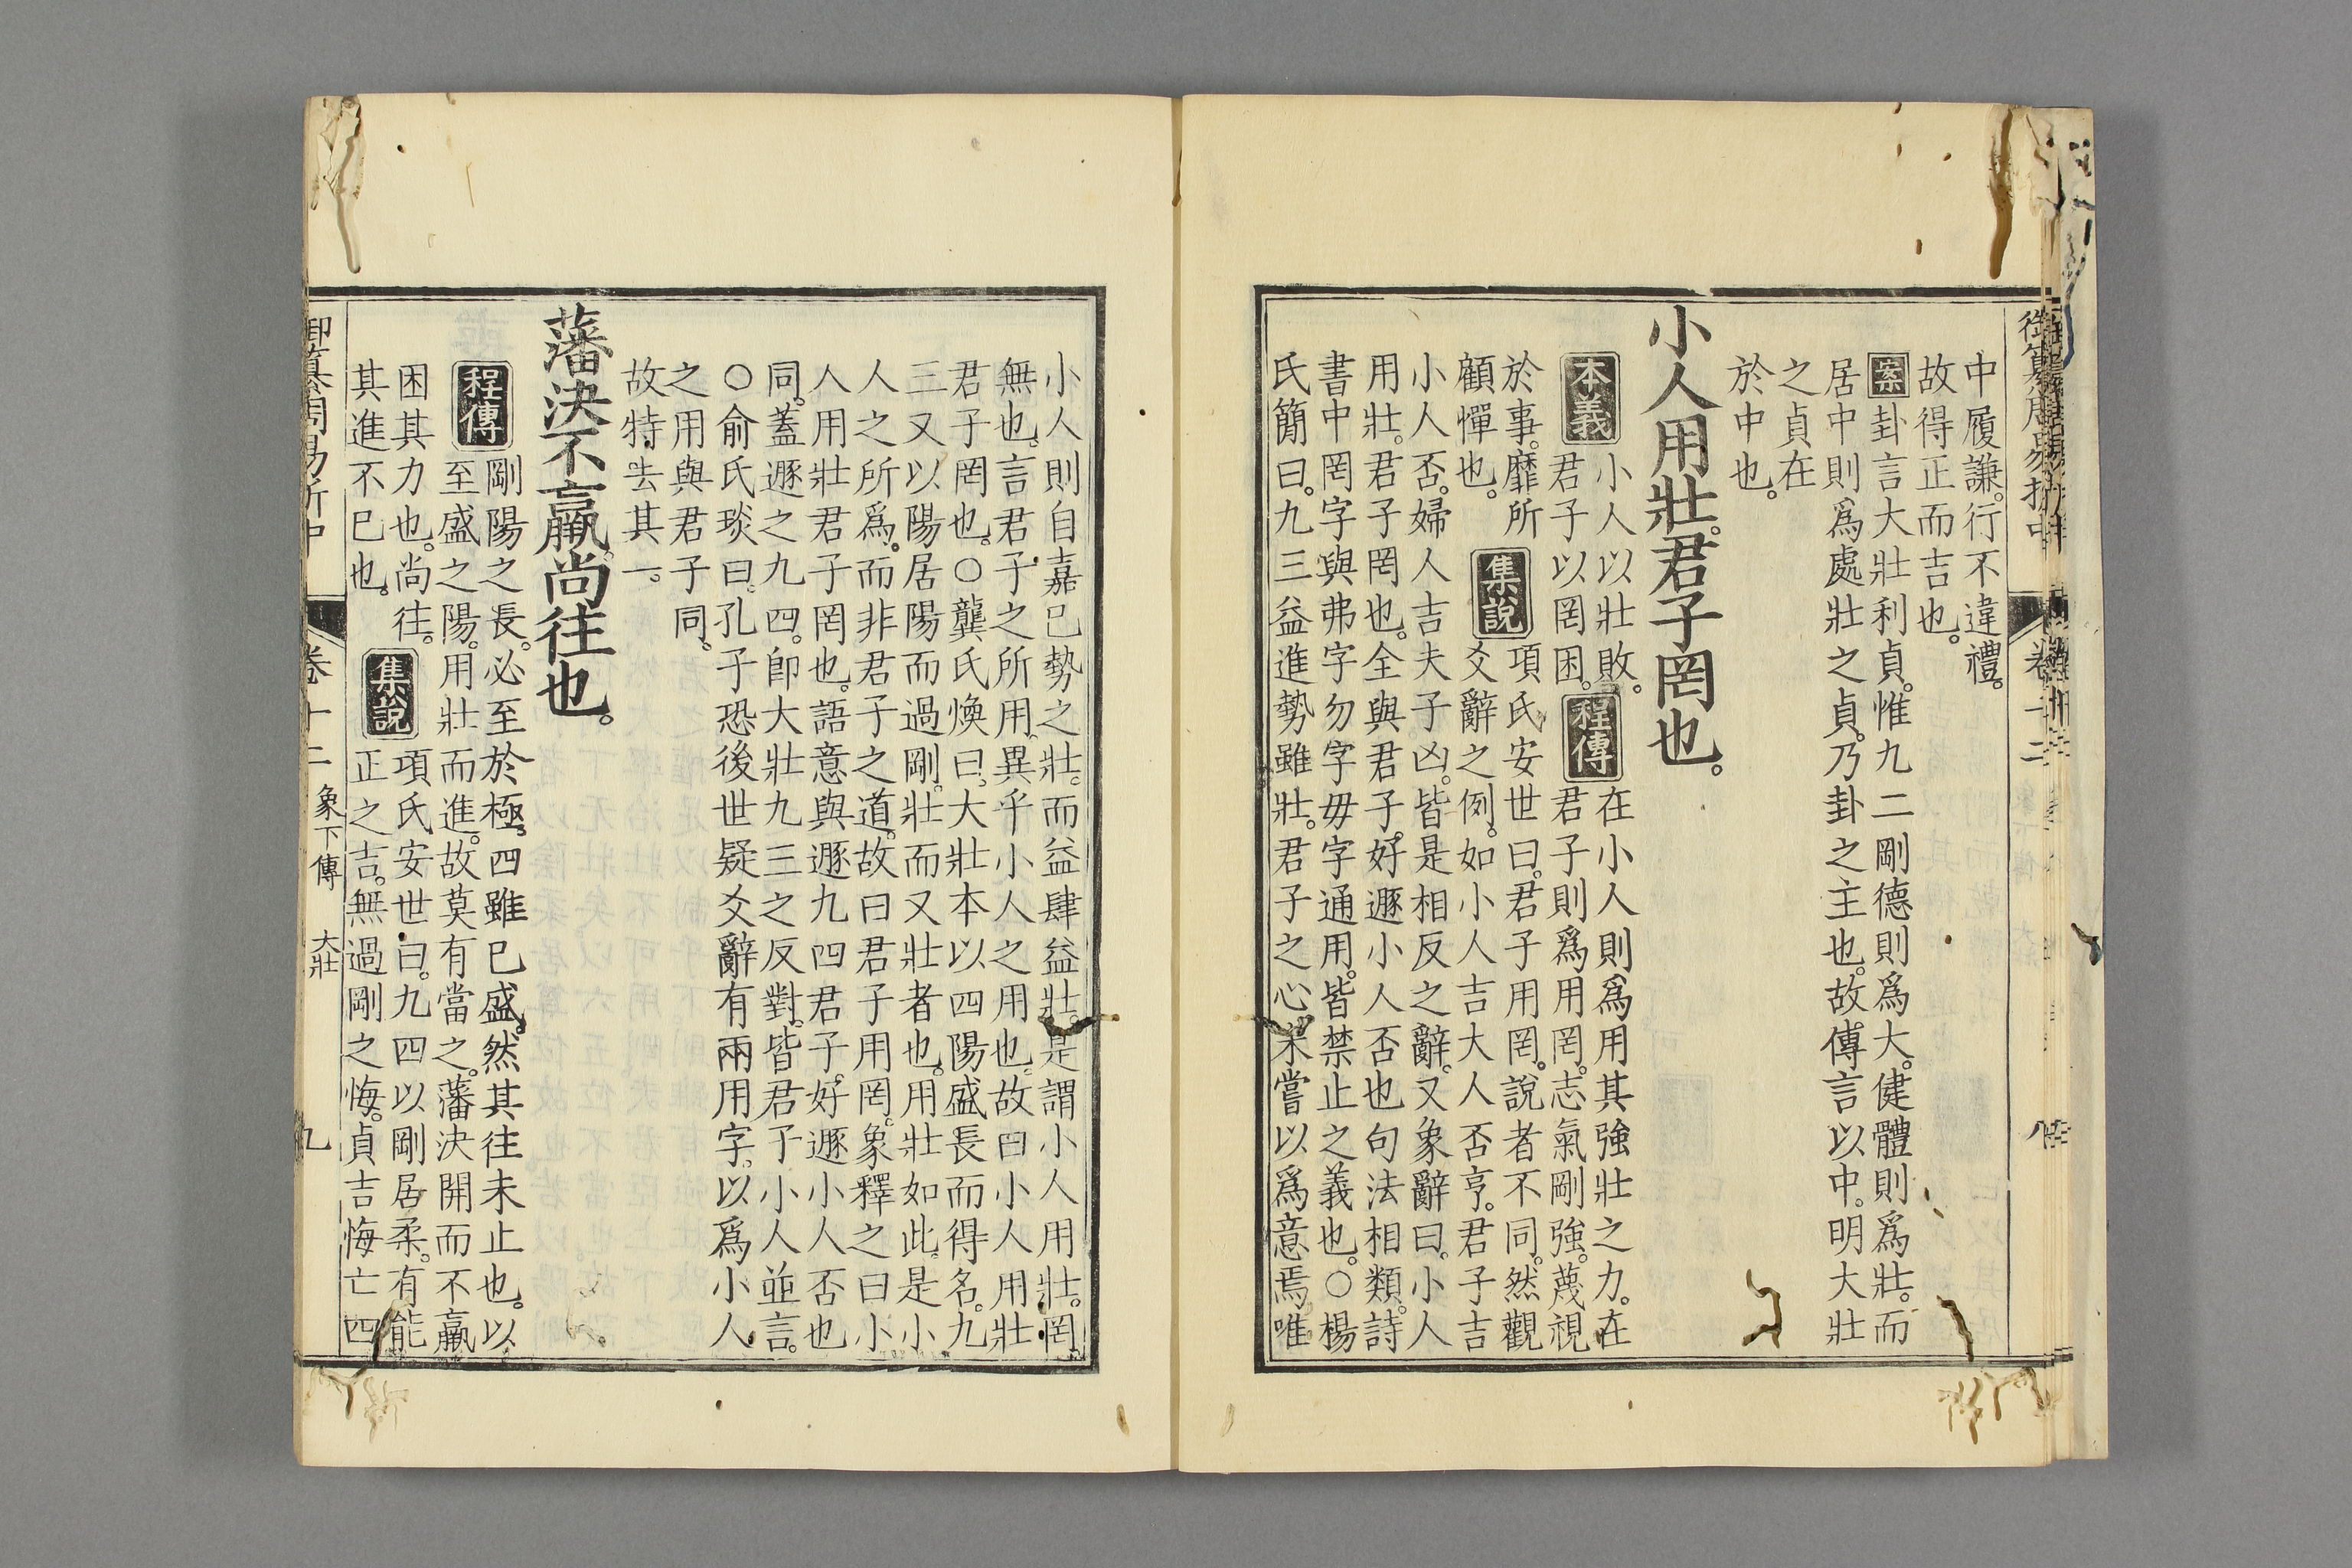 御纂周易折中 卷十二 八
中履謙。行不違禮。
故得正而吉也。
案 卦言大壯利貞。惟九二剛德則爲大。健體則爲壯。而
居中則爲處壯之貞。乃卦之主也。故傳言以中。明大壯
之貞在
於中也。
小人用壯。君子罔也。
本義
小人以壯敗。
君子以罔困。
程傳
在小人則爲用其強壯之力。在
君子則爲用罔。志氣剛強。蔑視
於事。靡所
顧憚也。
集說
項氏安世曰。君子用罔。說者不同。然觀
爻辭之例。如小人吉大人否亨。君子吉
小人否。婦人吉夫子凶。皆是相反之辭。又象辭曰。小人
用壯。君子罔也。全與君子好遯小人否也句法相類。詩
書中罔字與弗字勿字毋字通用。皆禁止之義也。○楊
氏簡曰。九三益進勢雖壯。君子之心未嘗以爲意焉。唯
小人則自嘉已勢之壯。而益肆益壯。是謂小人用壯。罔
無也。言君子之所用。異乎小人之用也。故曰小人用壯
君子罔也。○龔氏煥曰。大壯本以四陽盛長而得名。九
三又以陽居陽而過剛。壯而又壯者也。用壯如此。是小
人之所爲。而非君子之道。故曰君子用罔。象釋之曰小
人用壯君子罔也。語意與遯九四君子好遯小人否也
同。蓋遯之九四。卽大壯九三之反對。皆君子小人並言。
○俞氏琰曰。孔子恐後世疑爻辭有兩用字。以爲小人
之用與君子同。
故特去其一。
藩決不羸。尚往也。
程傳
剛陽之長。必至於極。四雖已盛。然其往未止也。以
至盛之陽。用壯而進。故莫有當之。藩決開而不羸
困其力也。尚往。
其進不已也。
集說
項氏安世曰。九四以剛居柔。有能
正之吉。無過剛之悔。貞吉悔亡四
御纂周易折中 卷十二 象下傳 大壯 九